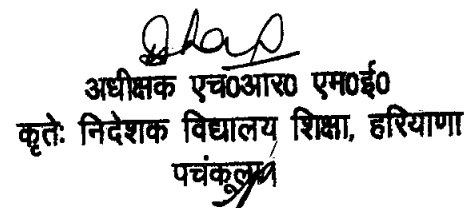 अधीक्षक एच0आर0 एम0ई0
कृतेः निदेशक विद्यालय शिक्षा, हरियाणा
पचंकूला